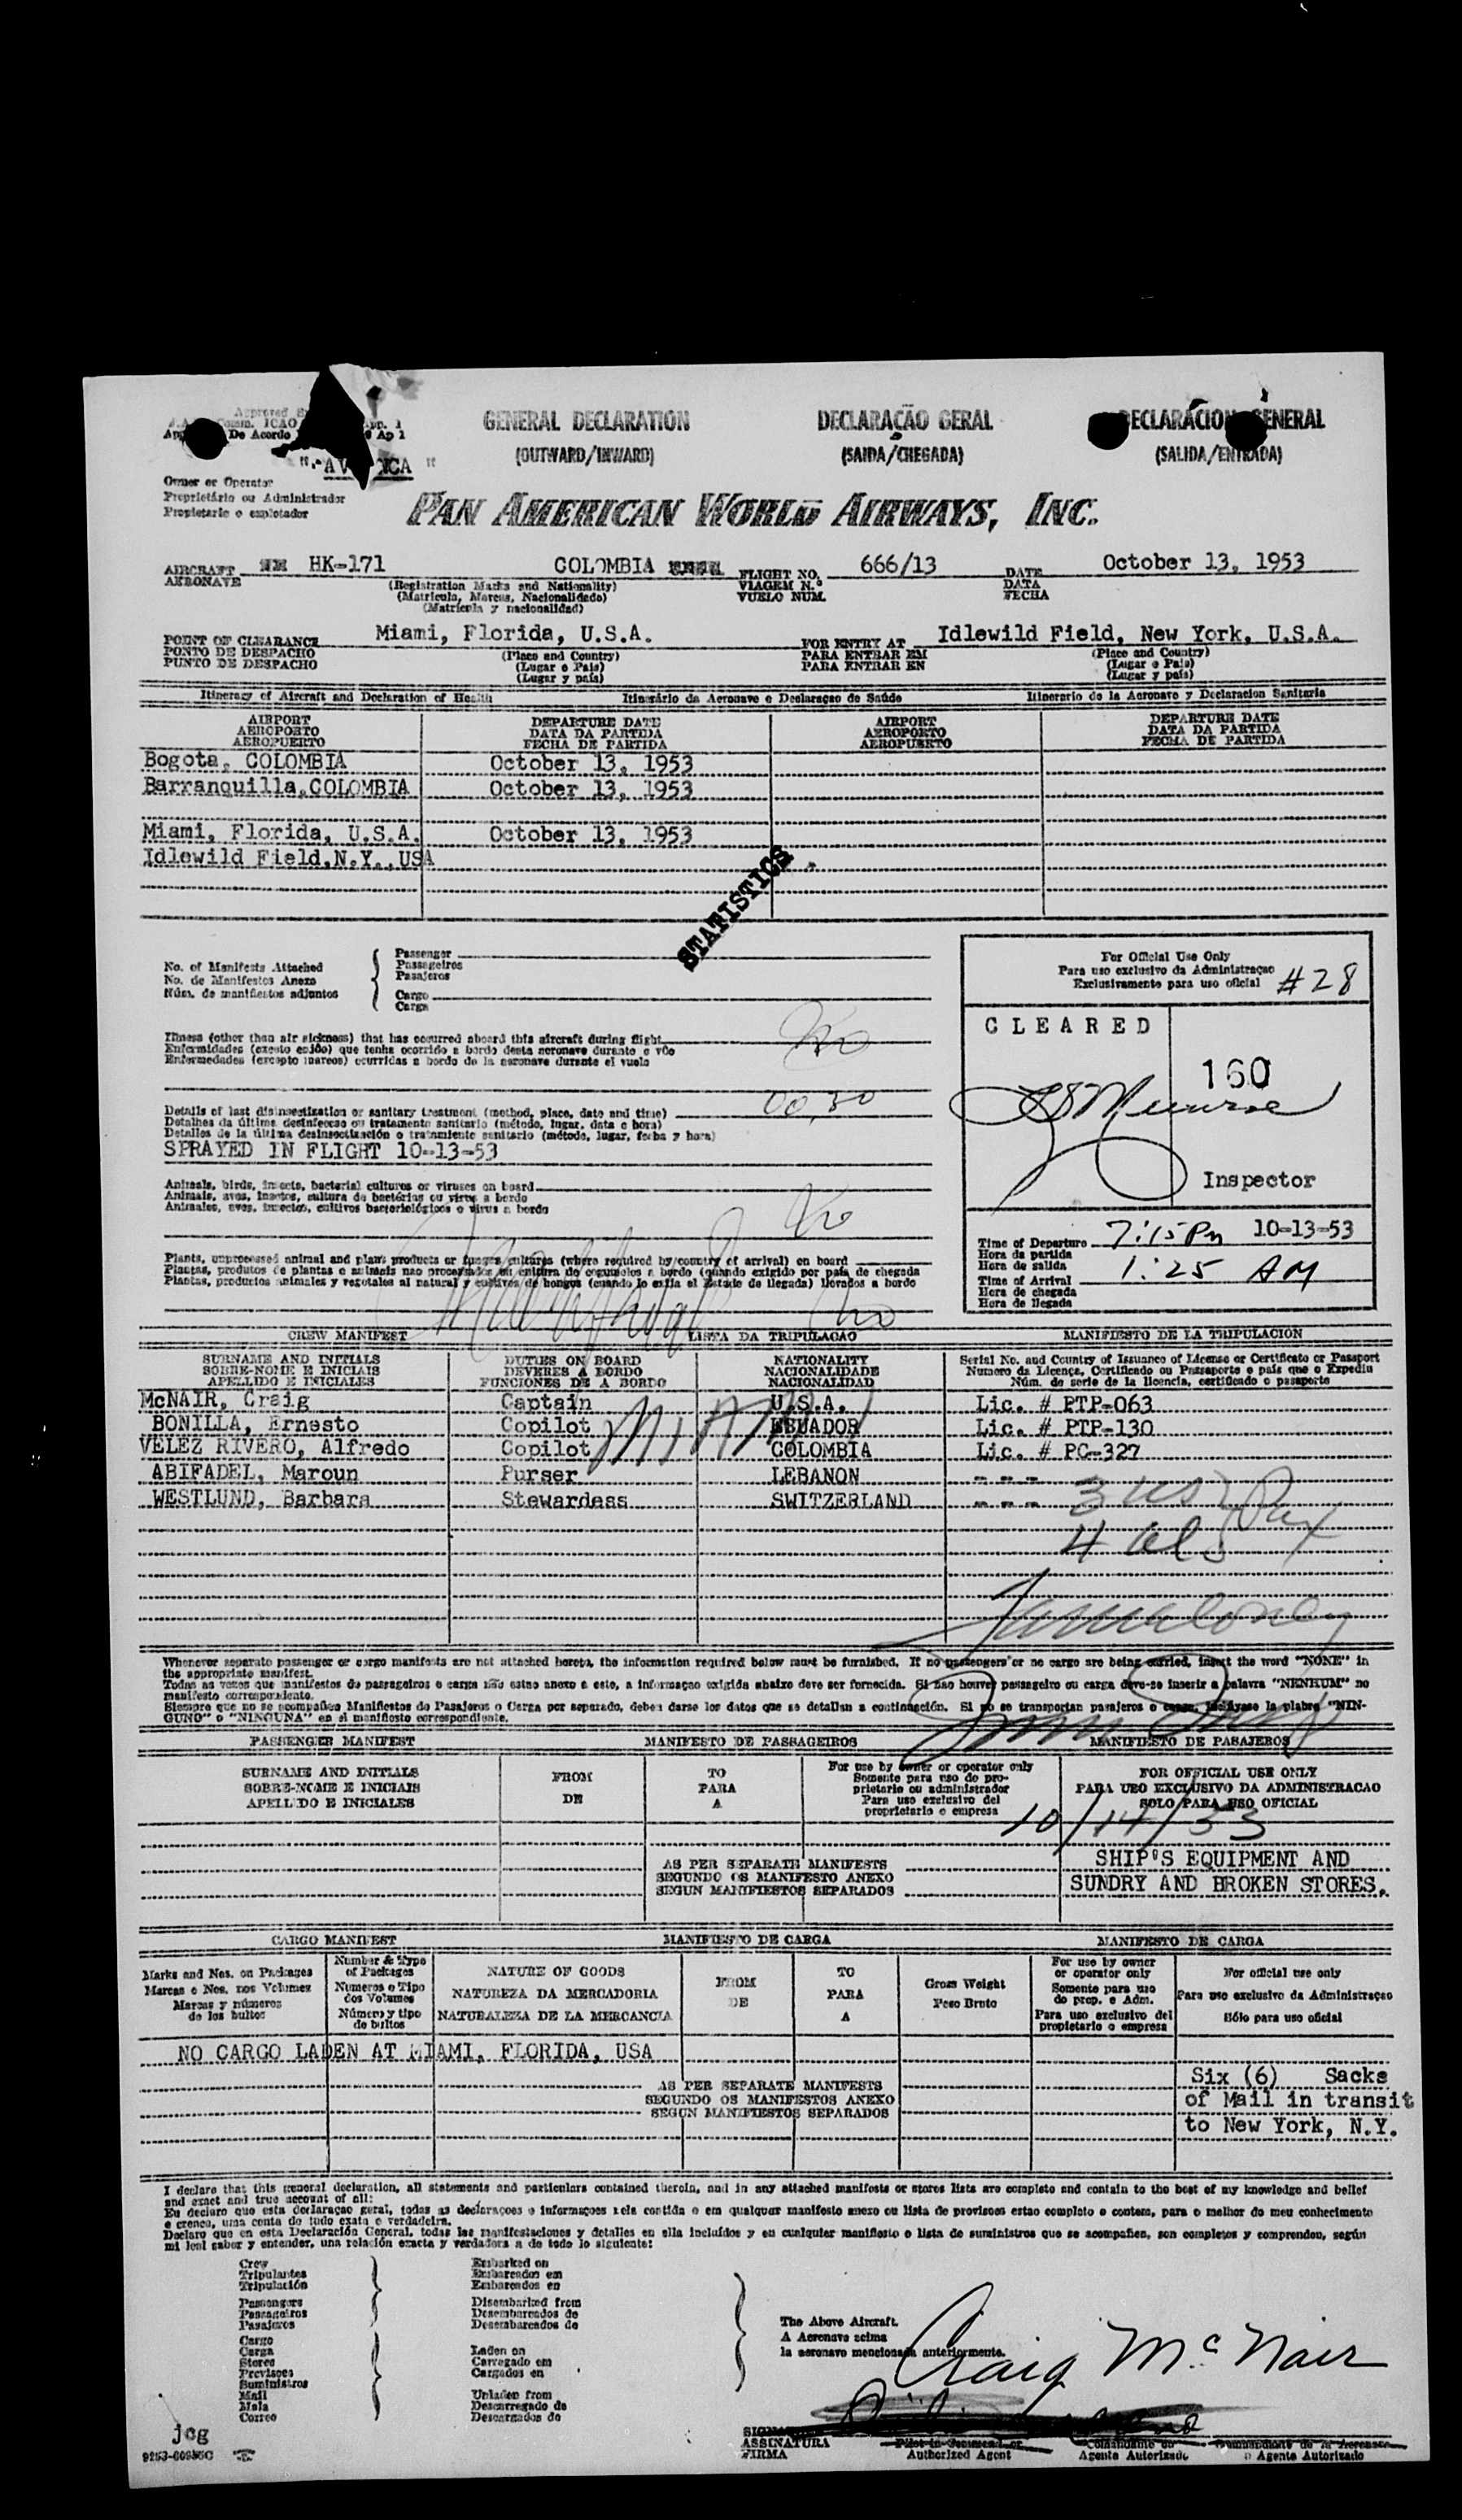 GENERAL DECLARATION
(OUTWARD/INWARD)
DECLARAÇÃO GERAL
(SAIDA/CHEGADA)
(SALIDA/ENTRADA)
De Acordo
Owner or Operator
Proprietário ou Administrador
Propietario o explotador
PAN AMERICAN WORLD AIRWAYS, INC.
AIRCRAFT HK-171 COLOMBIA FLIGHT NO. 666/13 DATE October 13, 1953
AERONAVE (Registration Marks and Nationality) VIAGEM N.º DATA
(Matricula, Marcas, Nacionalidade) VUELO NUM. FECHA
(Matrícula y nacionalidad)
POINT OF CLEARANCE Miami, Florida, U.S.A. FOR ENTRY AT Idlewild Field, New York, U.S.A.
PONTO DE DESPACHO (Place and Country) PARA ENTRAR EM (Place and Country)
PUNTO DE DESPACHO (Lugar e Pais) PARA ENTRAR EN (Lugar e Pais)
(Lugar y país) (Lugar y país)
Itinerary of Aircraft and Declaration of Health Itinerário da Aeronave e Declaraçao de Saúde Itinerario de la Aeronave y Declaracion Sanitaria
AIRPORT DEPARTURE DATE AIRPORT DEPARTURE DATE
AEROPORTO DATA DA PARTIDA AEROPORTO DATA DA PARTIDA
AEROPUERTO FECHA DE PARTIDA AEROPUERTO FECHA DE PARTIDA
Bogota, COLOMBIA October 13, 1953
Barranquilla,COLOMBIA October 13, 1953
Miami, Florida, U.S.A. October 13, 1953
Idlewild Field,N.Y.,USA
STATISTICS
No. of Manifests Attached
No. de Manifestos Anexo
Núm. de manifiestos adjuntos
Passenger
Passageiros
Pasajeros
Cargo
Carga
For Official Use Only
Para uso exclusivo da Administraçao
Exclusivamente para uso oficial #28
CLEARED
160
Inspector
Illness (other than air sickness) that has occurred aboard this aircraft during flight No
Enfermidades (exceto enjôo) que tenha ocorrido a bordo desta aeronave durante o vôo
Enfermedades (excepto mareos) ocurridas a bordo de la aeronave durante el vuelo
Details of last disinsectization or sanitary treatment (method, place, date and time)
Detalhes da última desinfeccao ou tratamento sanitario (método, lugar, data e hora)
Detalles de la última desinsectización o tratamiento sanitario (método, lugar, fecha y hora)
SPRAYED IN FLIGHT 10-13-53
Animals, birds, insects, bacterial cultures or viruses on board No
Animais, aves, insetos, cultura de bactérias ou virus a bordo
Animales, aves, insectos, cultivos bacteriológicos o virus a bordo
Plants, unprocessed animal and plant products or fungus cultures (where required by country of arrival) on board No
Plantas, produtos de plantas e animais nao processados ou cultura de cogumelos a bordo (quando exigido por país de chegada
Plantas, productos animales y vegetales al natural y cultivos de hongos (cuando lo exija el Estado de llegada) llevados a bordo
Time of Departure 7:15 Pm 10-13-53
Hora da partida
Hora de salida
Time of Arrival 1:25 AM
Hora de chegada
Hora de llegada
CREW MANIFEST LISTA DA TRIPULACAO MANIFIESTO DE LA TRIPULACION
SURNAME AND INITIALS DUTIES ON BOARD NATIONALITY Serial No. and Country of Issuance of License or Certificate or Passport
SOBRE-NOME E INICIAIS DEVERES A BORDO NACIONALIDADE Numero da Licença, Certificado ou Passaporte e pais que o Expediu
APELLIDO E INICIALES FUNCIONES DE A BORDO NACIONALIDAD Núm. de serie de la licencia, certificado o pasaporte
McNAIR, Craig Captain U.S.A. Lic. # PTP-063
BONILLA, Ernesto Copilot ECUADOR Lic. # PTP-130
VELEZ RIVERO, Alfredo Copilot COLOMBIA Lic. # PC-327
ABIFADEL, Maroun Purser LEBANON - - -
WESTLUND, Barbara Stewardess SWITZERLAND - - -
MIAMI
3 us
4 als Pax
Whenever separate passenger or cargo manifests are not attached hereto, the information required below must be furnished. If no passengers or no cargo are being carried, insert the word "NONE" in
the appropriate manifest.
Todas as vezes que manifestos de passageiros e carga não estao anexo a este, a informaçao exigida abaixo deve ser fornecida. Si nao houver passageiro ou carga deve-se inserir a palavra "NENHUM" no
manifesto correspondente.
Siempre que no se acompañen Manifiestos de Pasajeros o Carga por separado, deben darse los datos que se detallan a continuación. Si no se transportan pasajeros o carga, inclúyase la plabra "NIN-
GUNO" o "NINGUNA" en el manifiesto correspondiente.
PASSENGER MANIFEST MANIFESTO DE PASSAGEIROS MANIFIESTO DE PASAJEROS
SURNAME AND INITIALS FROM TO For use by owner or operator only FOR OFFICIAL USE ONLY
SOBRE-NOME E INICIAIS DE PARA Somente para uso do pro- PARA USO EXCLUSIVO DA ADMINISTRACAO
APELLIDO E INICIALES A prietario ou administrador SOLO PARA USO OFICIAL
Para uso exclusivo del
propietario o empresa
10/14/53
AS PER SEPARATE MANIFESTS SHIP'S EQUIPMENT AND
SEGUNDO OS MANIFESTO ANEXO SUNDRY AND BROKEN STORES.
SEGUN MANIFIESTOS SEPARADOS
CARGO MANIFEST MANIFIESTO DE CARGA MANIFESTO DE CARGA
Marks and Nos. on Packages Number & Type of Packages NATURE OF GOODS FROM TO Gross Weight For use by owner or operator only For official use only
Marcas e Nos. nos Volumes Numeros e Tipo dos Volumes NATUREZA DA MERCADORIA DE PARA Peso Bruto Somente para uso do prop. e Adm. Para uso exclusivo da Administraçao
Marcas y números de los bultos Número y tipo de bultos NATURALEZA DE LA MERCANCIA A Para uso exclusivo del propietario o empresa Sólo para uso oficial
NO CARGO LADEN AT MIAMI, FLORIDA, USA
AS PER SEPARATE MANIFESTS Six (6) Sacks
SEGUNDO OS MANIFESTOS ANEXO of Mail in transit
SEGUN MANIFIESTOS SEPARADOS to New York, N.Y.
I declare that this general declaration, all statements and particulars contained therein, and in any attached manifests or stores lists are complete and contain to the best of my knowledge and belief
and exact and true account of all:
Eu declaro que esta declaraçao geral, todas as declaraçoes e informaçoes nela contida o em qualquer manifesto anexo ou lista de provisoes estao completo e contem, para o melhor do meu conhecimento
e crenca, uma conta de tudo exata e verdadeira.
Declaro que en esta Declaración General, todas las manifestaciones y detalles en ella incluídos y en cualquier manifiesto o lista de suministros que se acompañen, son completos y comprenden, según
mi leal saber y entender, una relación exacta y verdadera a de todo lo siguiente:
Crew Embarked on
Tripulantes Embarcados em
Tripulación Embarcados en
Passengers Disembarked from
Passageiros Desembarcados de
Pasajeros Desembarcados de
Cargo
Carga Laden on
Stores Carregado em
Previsoes Cargados en
Suministros
Mail Unladen from
Mala Descarregado de
Correo Descargados de
The Above Aircraft.
A Aeronave acima
la aeronave mencionada anteriormente.
Craig McNair
jcg
ASSINATURA
FIRMA
Authorized Agent Agente Autorizado o Agente Autorizado